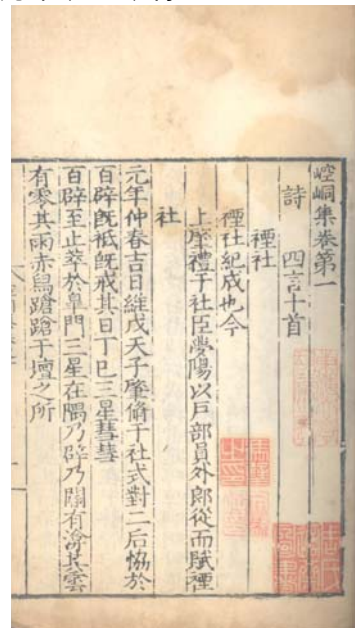 崆峒集卷第一
詩 四言十首
禋社
禋社紀成也今
上肇禮于社臣夢陽以戶部員外郎從而賦禋
社
元年仲春吉日維戊天子肇脩于社式對二后恊於
百辟旣祗旣戒其日丁巳三星彗彗
百辟至止萃於臯門三星在隅乃辟乃闢有渰其雲
有零其雨赤舄蹌蹌于壇之所